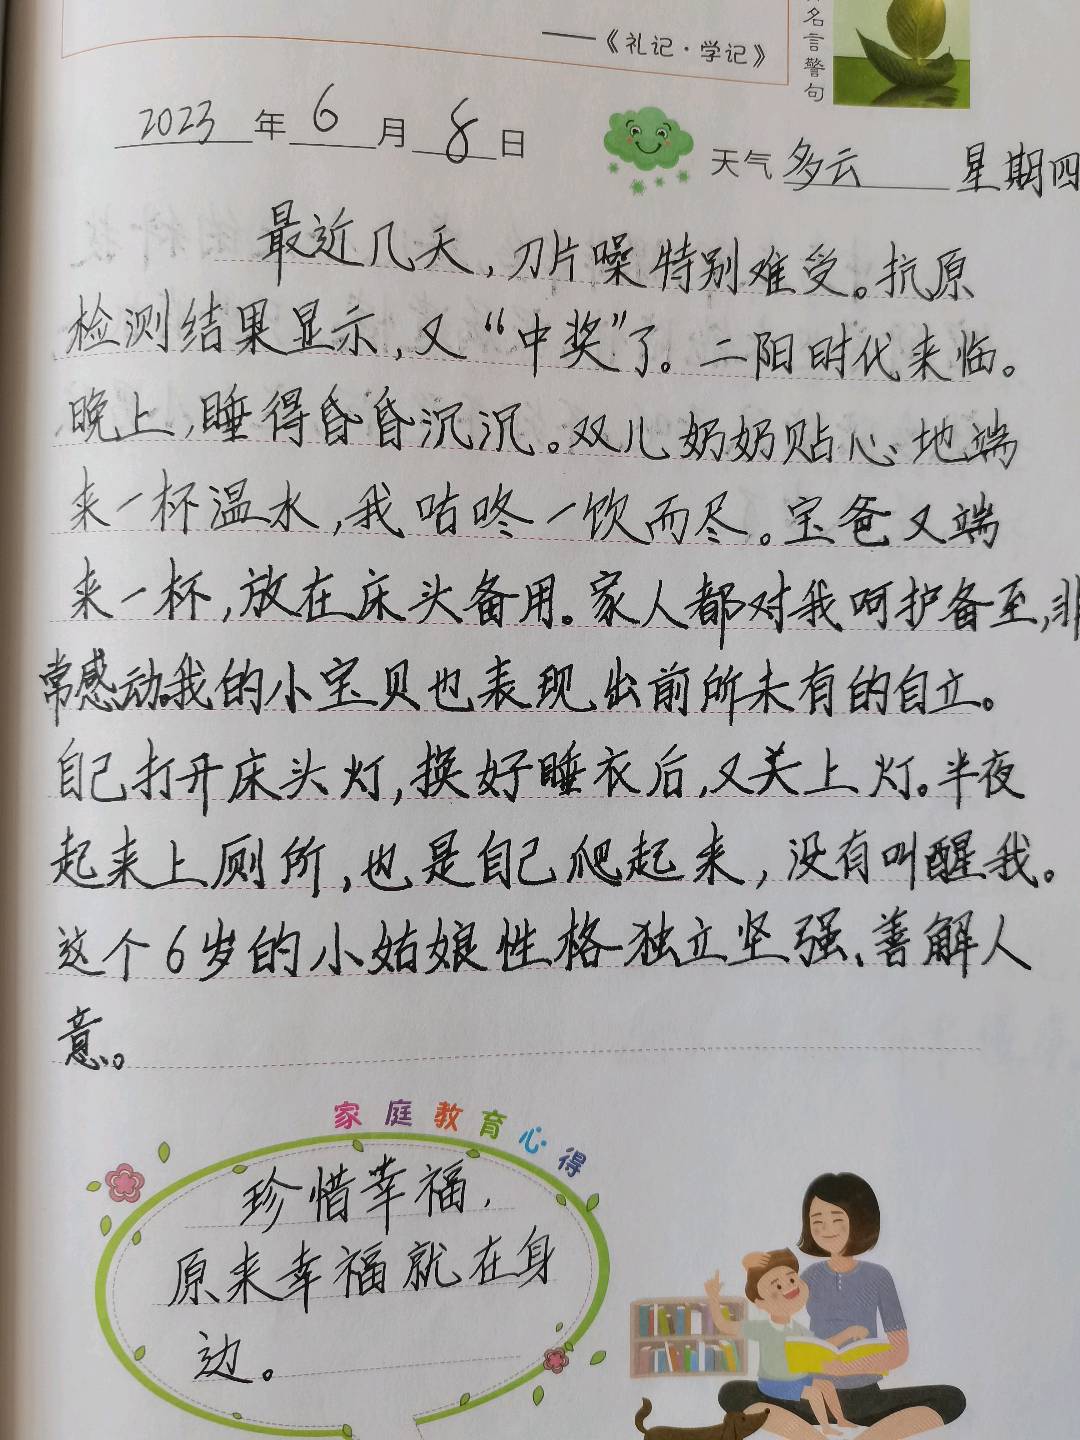 ——《礼记·学记》
名言警句
2023年6月8日 天气 多云 星期四
最近几天,刀片噪特别难受。抗原
检测结果显示,又“中奖”了。二阳时代来临。
晚上,睡得昏昏沉沉。双儿奶奶贴心地端
来一杯温水,我咕咚一饮而尽。宝爸又端
来一杯,放在床头备用。家人都对我呵护备至,非
常感动。我的小宝贝也表现出前所未有的自立。
自己打开床头灯,换好睡衣后,又关上灯。半夜
起来上厕所,也是自己爬起来,没有叫醒我。
这个6岁的小姑娘性格独立坚强、善解人
意。
家庭教育心得
珍惜幸福,
原来幸福就在身
边。